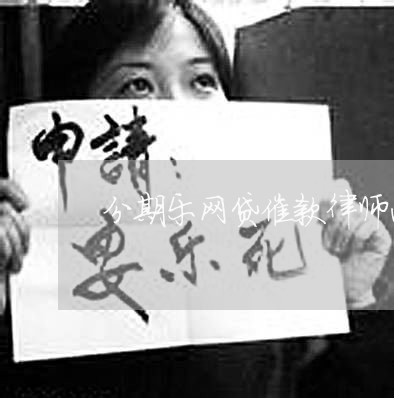 申請：
分期乐网贷催款律师
安乐死